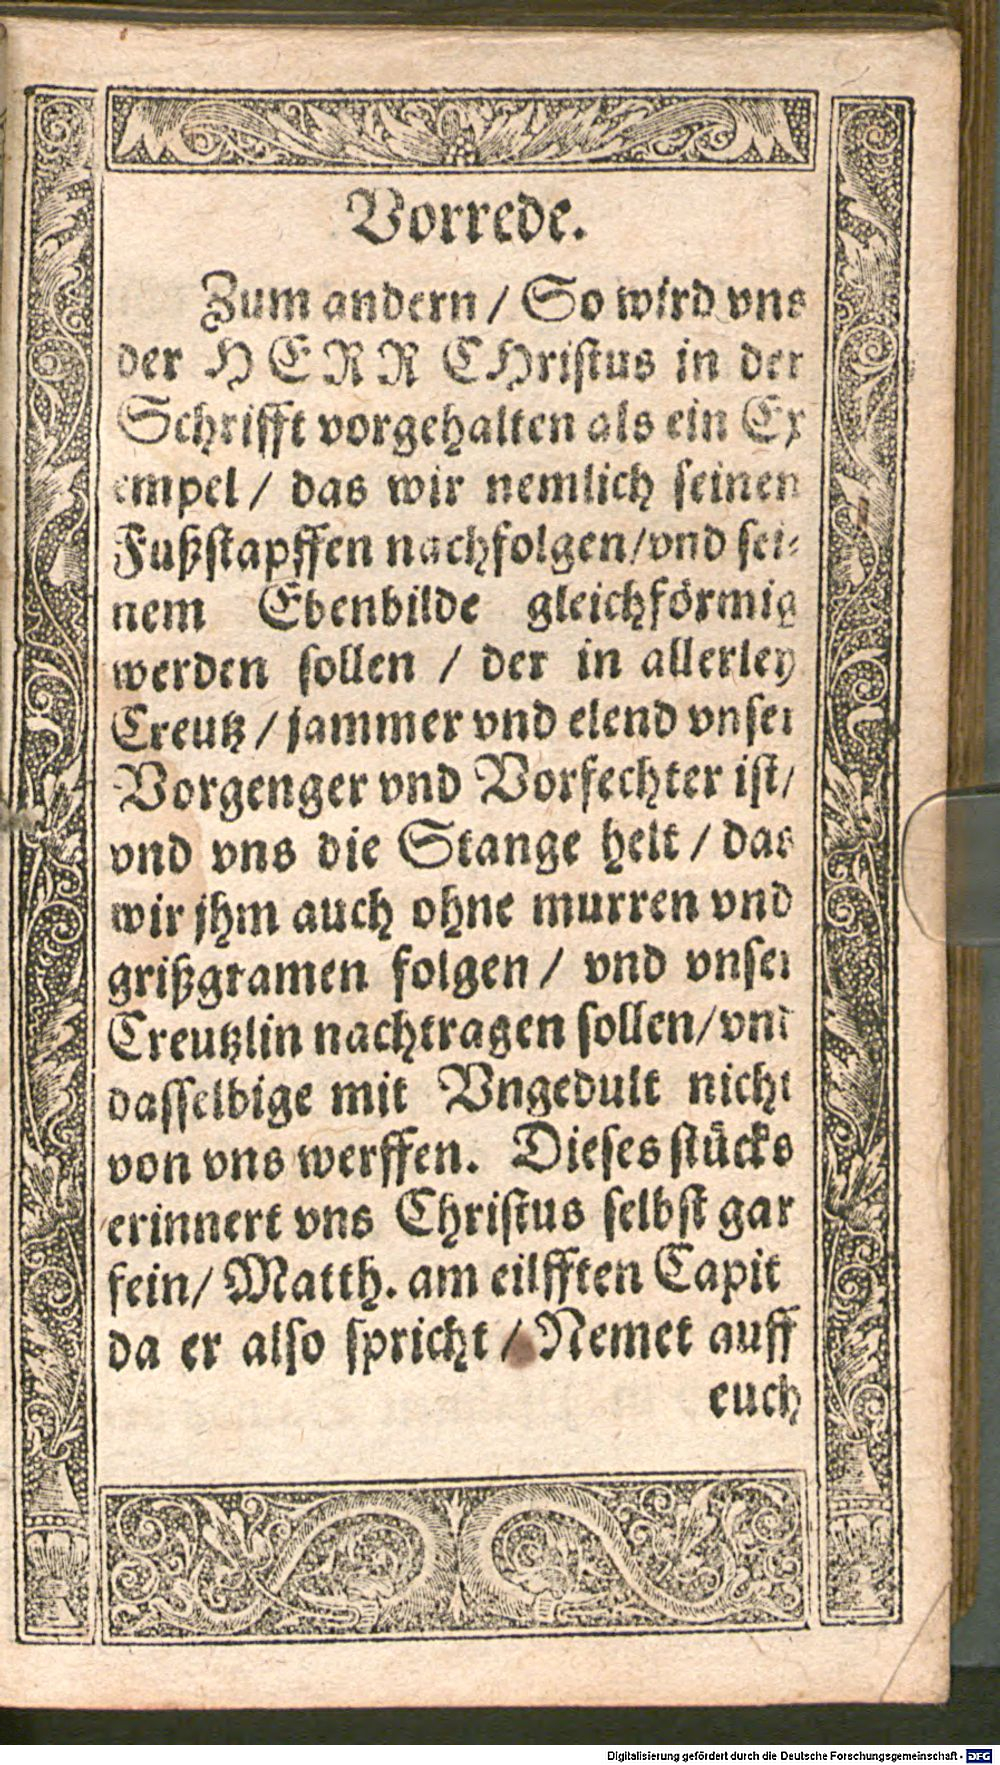 Vorrede.
Zum andern / So wird vns
der HERR CHristus in der
Schrifft vorgehalten als ein Ex
empel / das wir nemlich seinen
Fußstapffen nachfolgen / vnd sei-
nem Ebenbilde gleichförmig
werden sollen / der in allerley
Creutz / jammer vnd elend vnser
Vorgenger vnd Vorfechter ist /
vnd vns die Stange helt / das
wir jhm auch ohne murren vnd
grißgramen folgen / vnd vnser
Creutzlin nachtragen sollen / vnd
dasselbige mit Vngedult nicht
von vns werffen. Dieses stücks
erinnert vns Christus selbst gar
fein / Matth. am eilfften Capit
da er also spricht / Nemet auff
euch
Digitalisierung gefördert durch die Deutsche Forschungsgemeinschaft - DFG